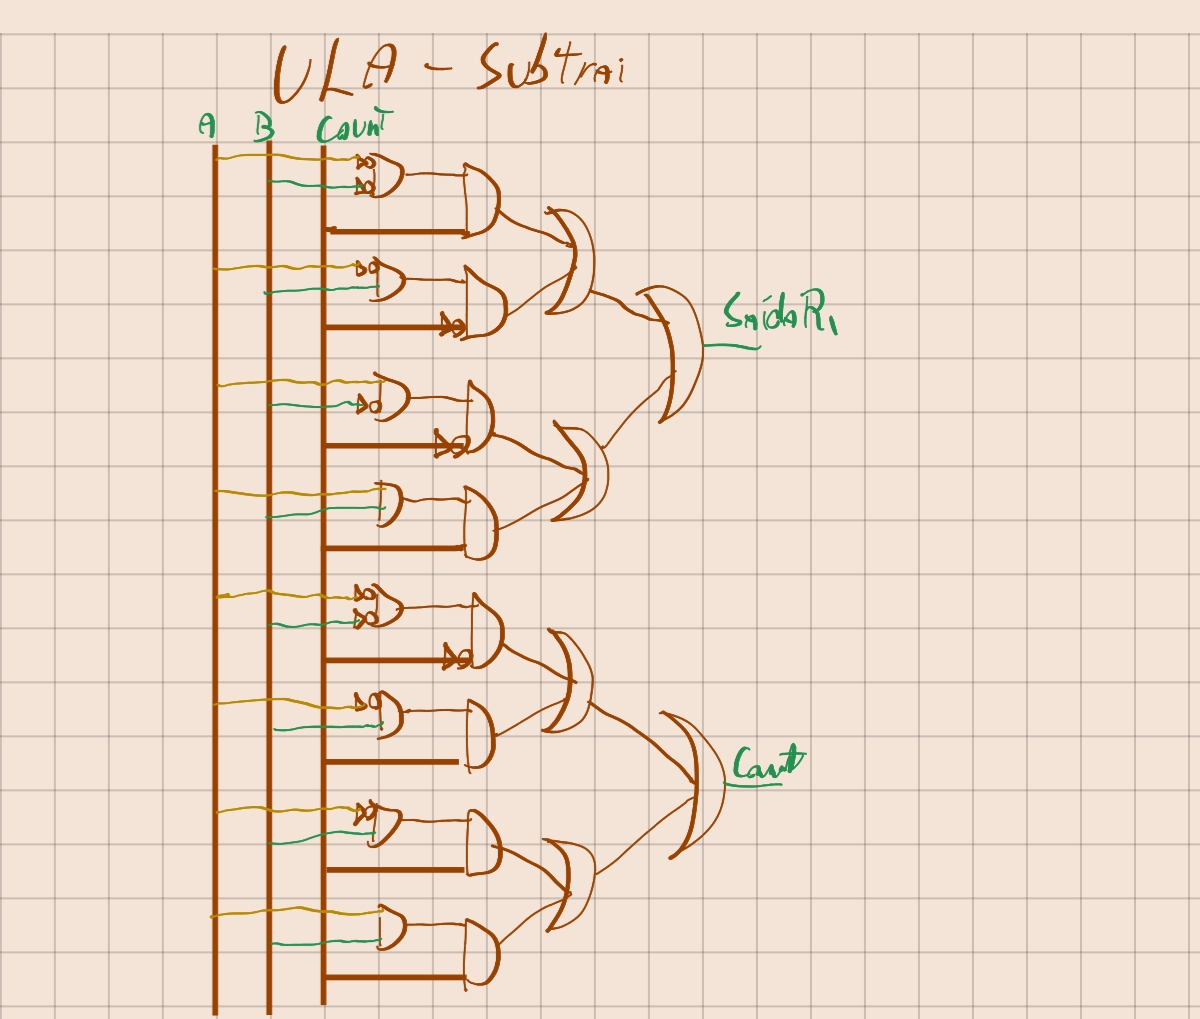 ULA - Subtrai
A B Count
SaídaR1
Cout